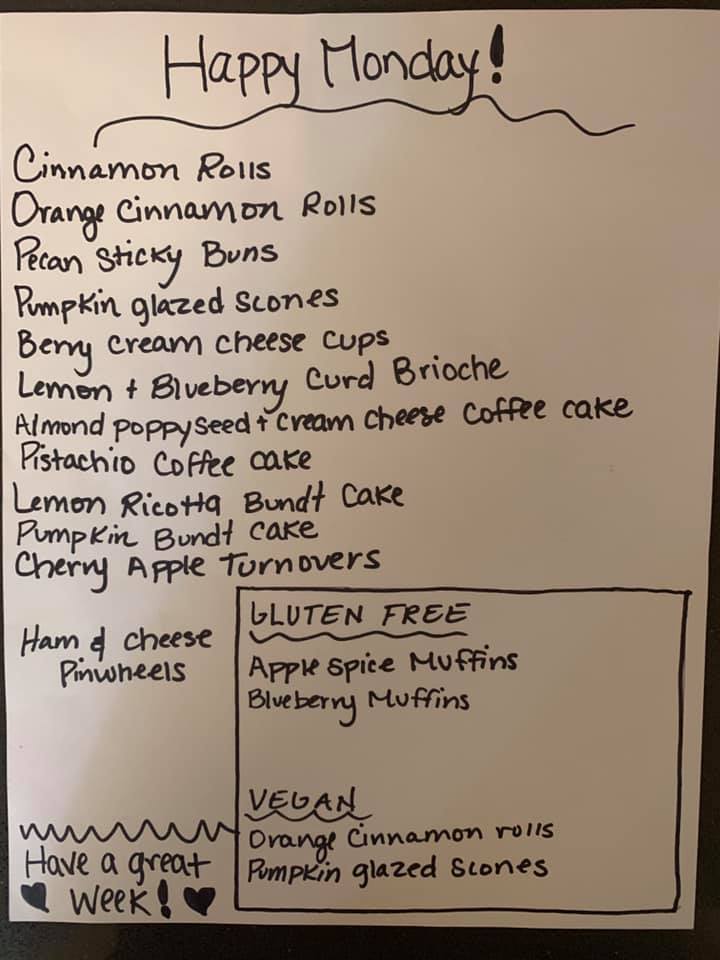 Happy Monday!
Cinnamon Rolls
Orange Cinnamon Rolls
Pecan Sticky Buns
Pumpkin glazed scones
Berry cream cheese cups
Lemon + Blueberry Curd Brioche
Almond poppyseed + cream cheese coffee cake
Pistachio Coffee cake
Lemon Ricotta Bundt Cake
Pumpkin Bundt cake
Cherry Apple Turnovers
Ham & cheese
Pinwheels
GLUTEN FREE
Apple spice Muffins
Blueberry Muffins
VEGAN
Orange Cinnamon rolls
Pumpkin glazed Scones
Have a great
Week!